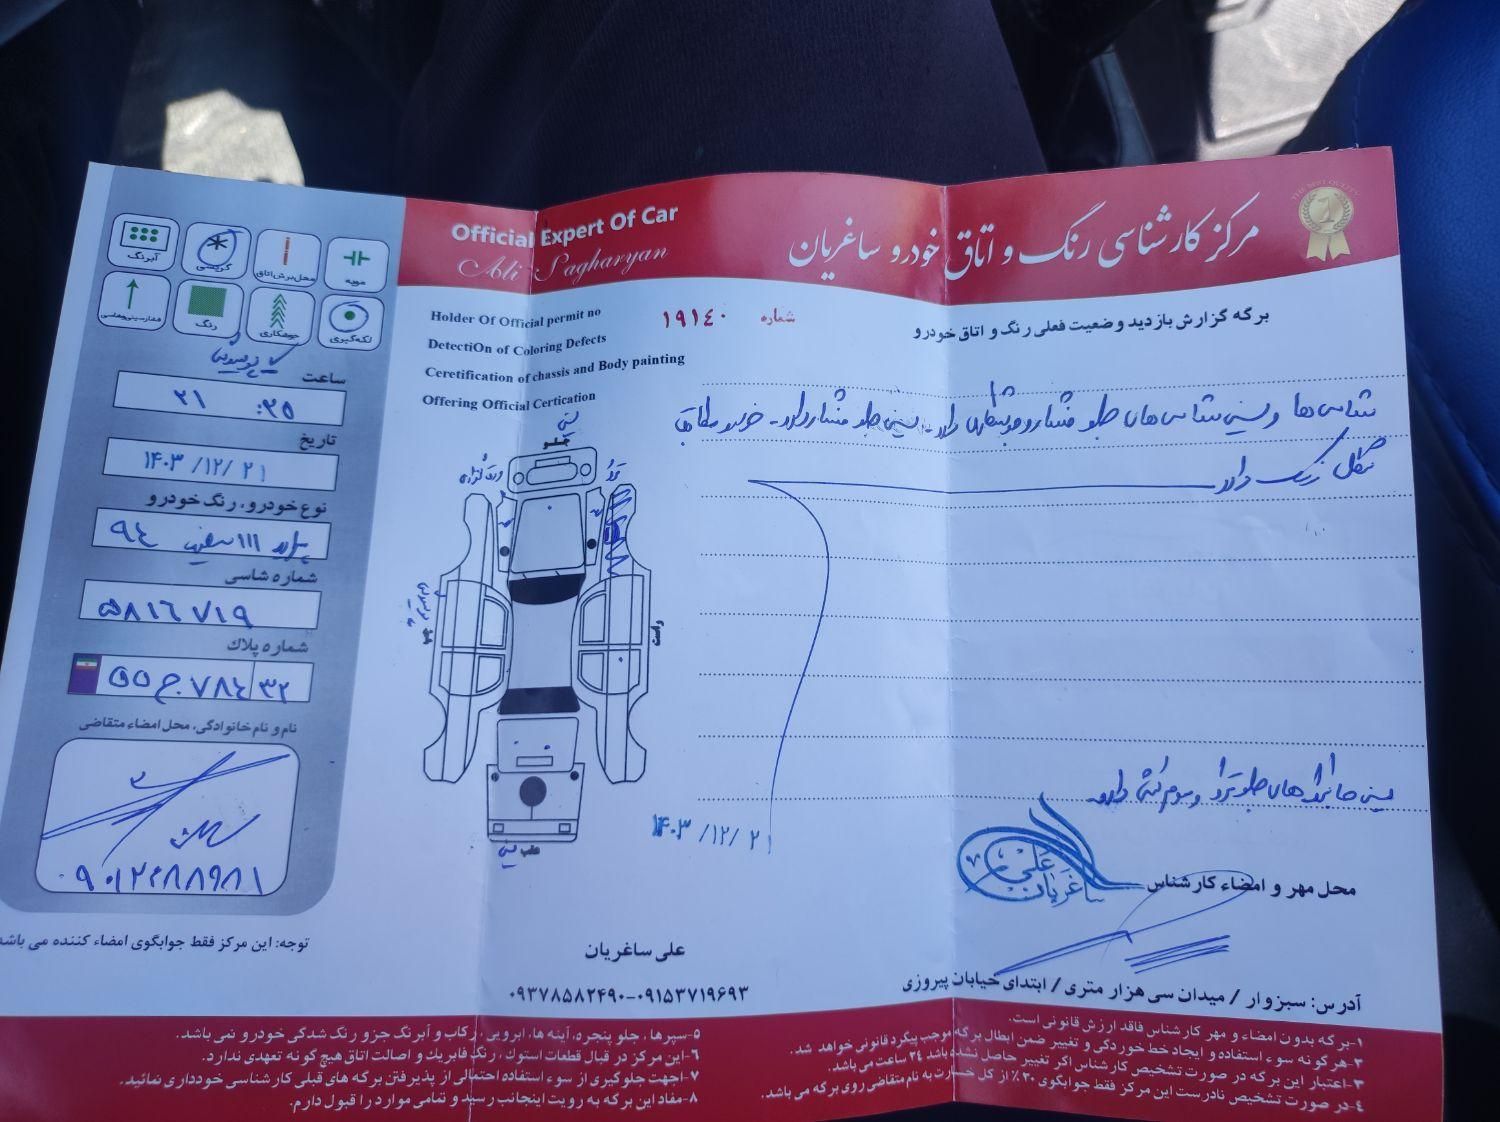 مرکز کارشناسی رنگ و اتاق خودرو ساغریان
Official Expert Of Car
Ali Sagharyan
برگه گزارش بازدید وضعیت فعلی رنگ و اتاق خودرو
شماره ۱۹۱٤۰
Holder Of Official permit no
DetectiOn of Coloring Defects
Ceretification of chassis and Body painting
Offering Official Certication
مویه
محل برش اتاق
گریسی
آبرنگ
لکه‌گیری
جوشکاری
رنگ
ساعت
۲۱ :۲۵
تاریخ
۱۴۰۳/۱۲/۲۱
نوع خودرو، رنگ خودرو
پراید ۱۱۱ سفید ۹٤
شماره شاسی
۵۸۱٦۷۱۹
شماره پلاک
۵۵ ج ۷۸٤ ۳۲
نام و نام خانوادگی، محل امضاء متقاضی
توجه: این مرکز فقط جوابگوی امضاء کننده می باشد
جلو
راست
چپ
عقب
شاسی ها و سینی شاسی های جلو فشار و جوشکاری دارد - سینی جلو فشار دارد - خودرو مطابق
شکل رنگ دارد
۱۴۰۳/۱۲/۲۱
محل مهر و امضاء کارشناس
علی ساغریان
علی ساغریان
۰۹۳۷۸۵۸۲۴۹۰-۰۹۱۵۳۷۱۹۶۹۳
آدرس: سبزوار / میدان سی هزار متری / ابتدای خیابان پیروزی
۱-برگه بدون امضاء و مهر کارشناس فاقد ارزش قانونی است.
۲-هرگونه سوء استفاده و ایجاد خط خوردگی و تغییر ضمن ابطال برگه موجب پیگرد قانونی خواهد شد.
۳-اعتبار این برگه در صورت تشخیص کارشناس اگر تغییر حاصل نشده باشد ۲۴ ساعت می باشد.
۴-در صورت تشخیص نادرست این مرکز فقط جوابگوی ۳۰٪ از کل خسارت به نام متقاضی روی برگه می باشد.
۵-سپرها، جلو پنجره، آینه ها، ابرویی، رکاب و آبرنگ جزو رنگ شدگی خودرو نمی باشد.
۶-این مرکز در قبال قطعات استوک، رنگ فابریک و اصالت اتاق هیچ گونه تعهدی ندارد.
۷-جهت جلوگیری از سوء استفاده احتمالی از پذیرفتن برگه های قبلی کارشناسی خودداری نمائید.
۸-مفاد این برگه به رویت اینجانب رسید و تمامی موارد را قبول دارم.